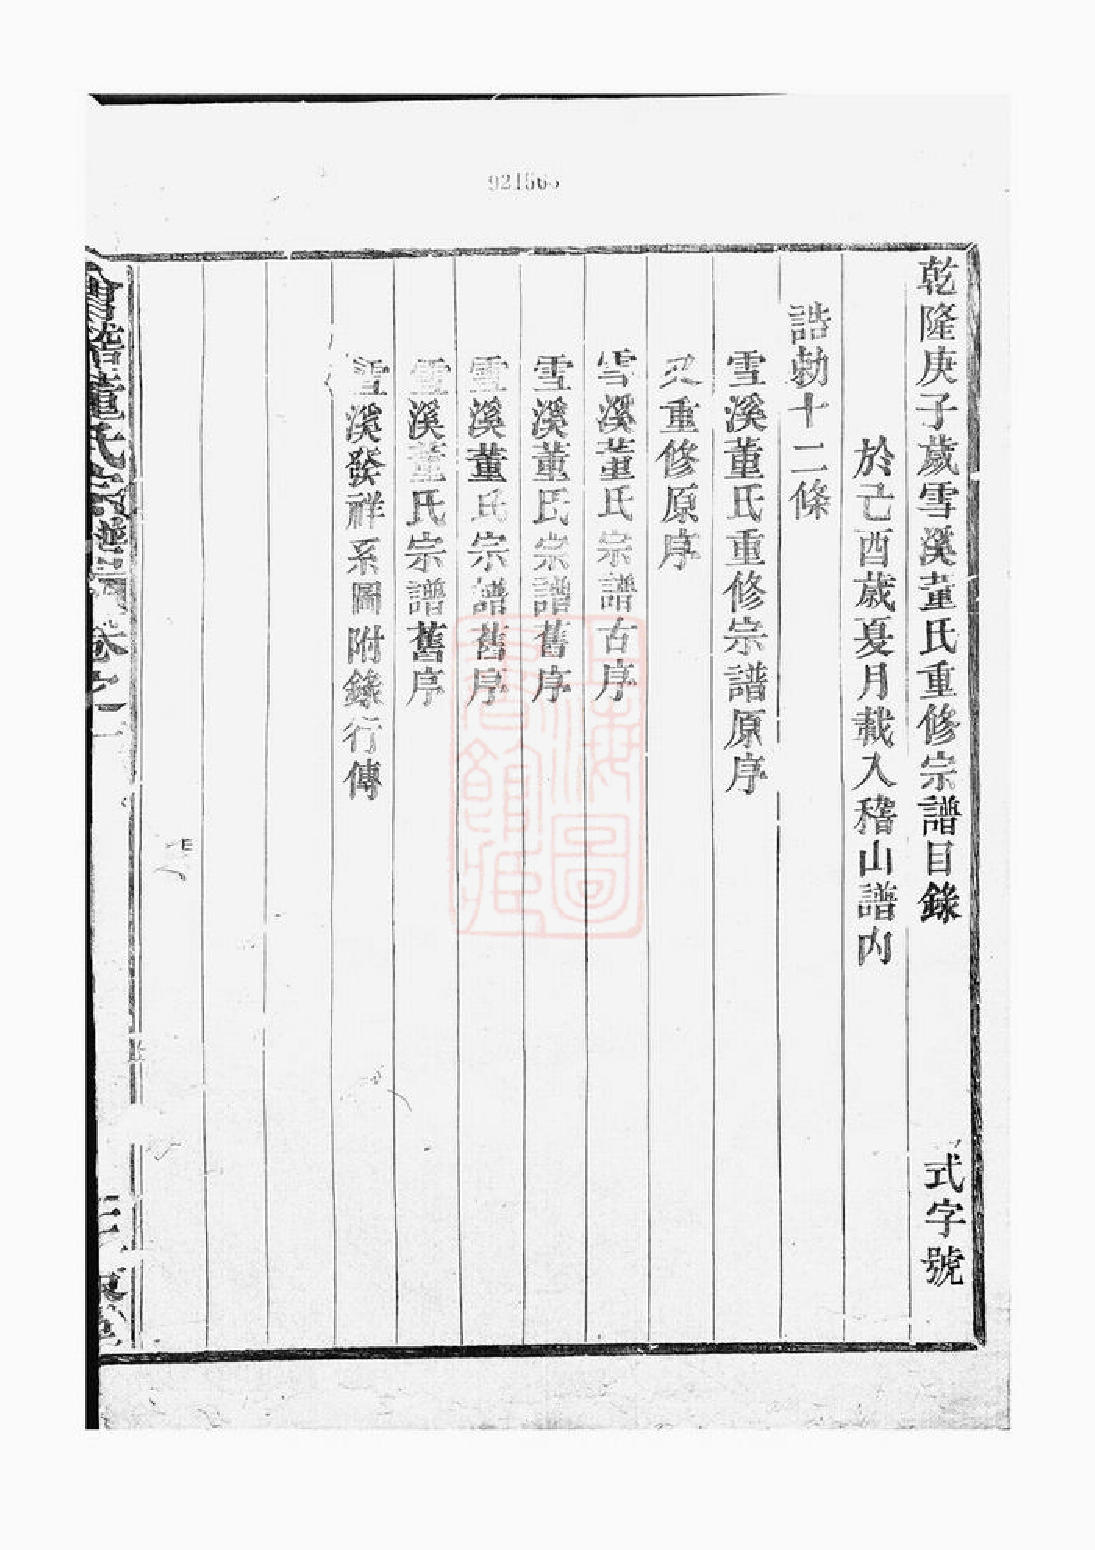 乾隆庚子歲雪溪董氏重修宗譜目錄 式字號
於己酉歲夏月載入稽山譜內
誥勅十二條
雪溪董氏重修宗譜原序
又重修原序
雪溪董氏宗譜古序
雪溪董氏宗譜舊序
雪溪董氏宗譜舊序
雪溪董氏宗譜舊序
雪溪發祥系圖附錄行傳
會稽董氏宗譜 卷之一
上海圖書館藏